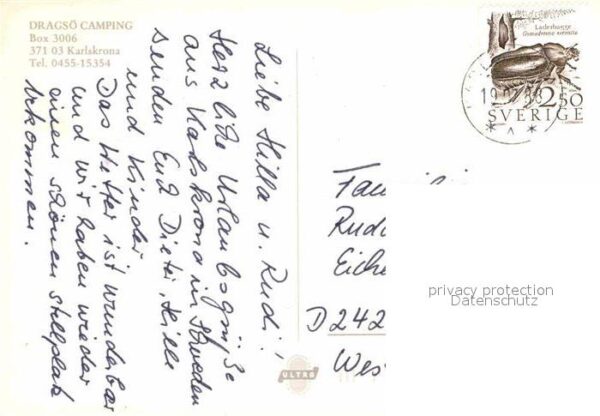 DRAGSÖ CAMPING
Box 3006
371 03 Karlskrona
Tel. 0455-15354
Liebe Hilla u. Rudi!
Herzliche Urlaubsgrüße
aus Karlskrona in Schweden
senden Euch Dieter, Hille
und Kinder
Das Wetter ist wunderbar
und wir haben wieder
einen schönen Stellplatz
bekommen.
Läderbagge
Osmoderma eremita
2.50
SVERIGE
Fam
Rud
Eiche
D 242
Wes
privacy protection
Datenschutz
ULTRA